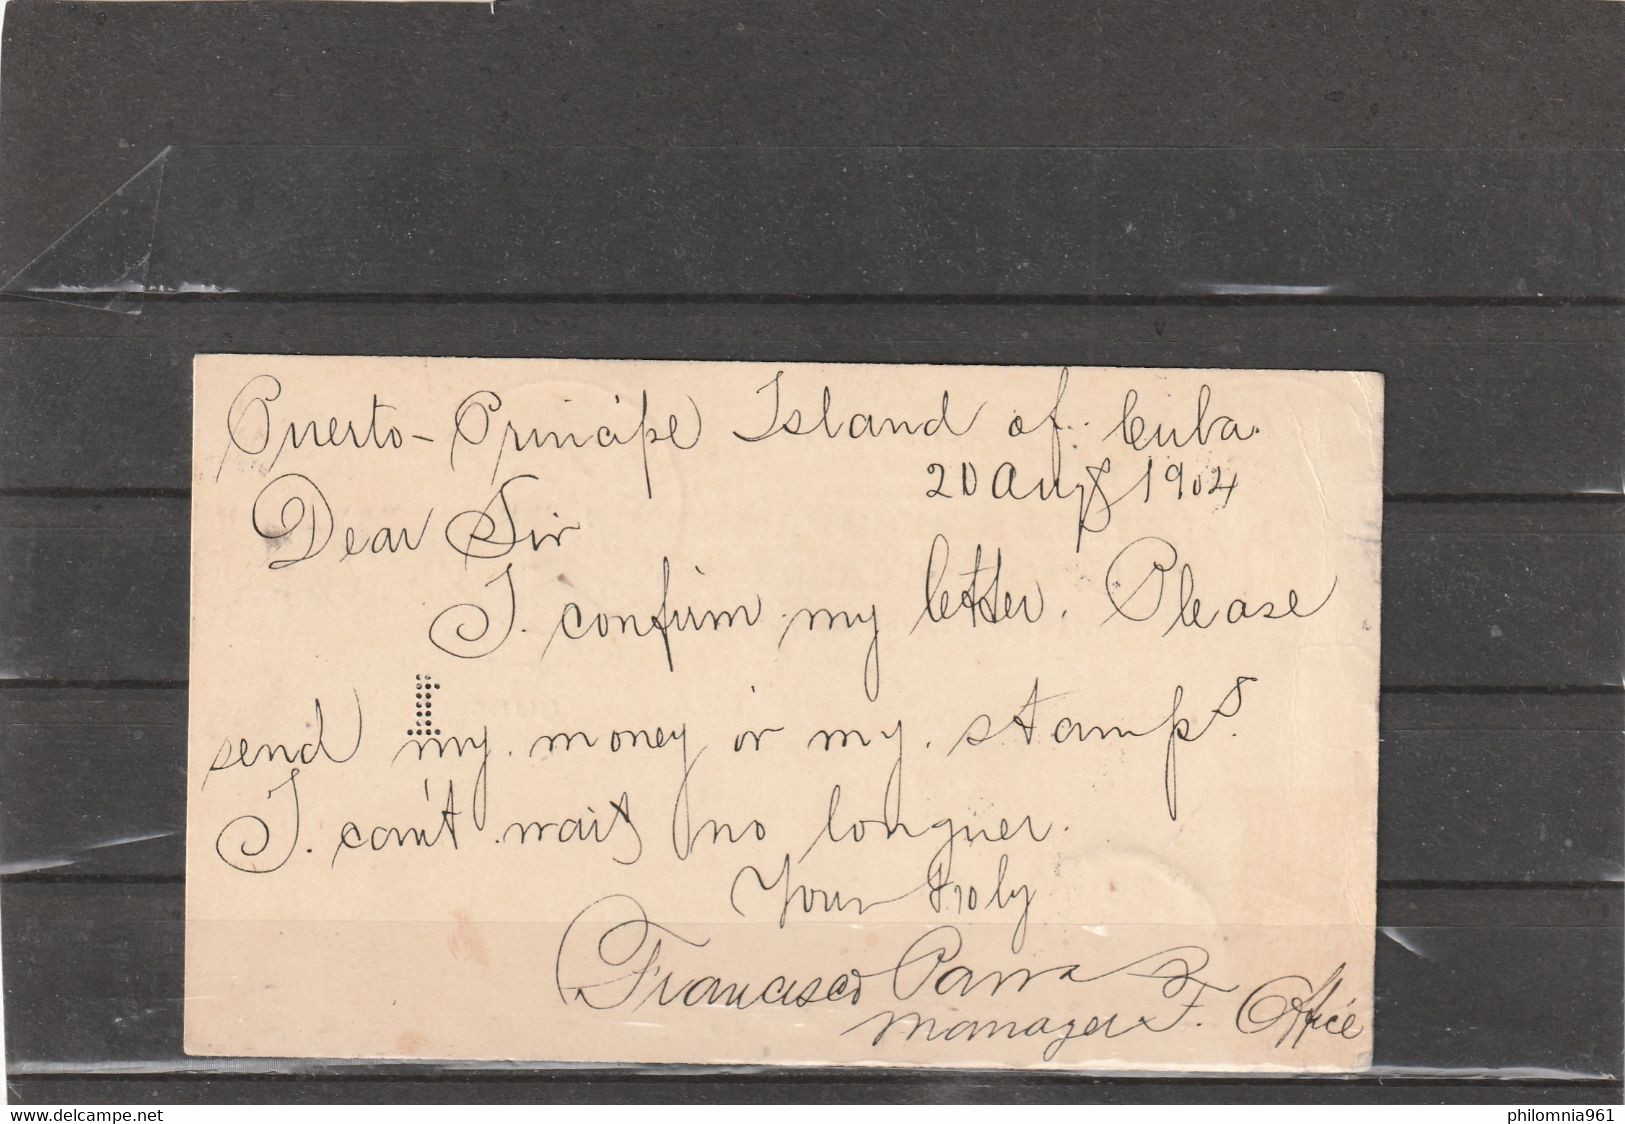 Puerto-Principe Island of Cuba.
20 Aug 1904
Dear Sir
I. confirm my letter. Please
send my. money or my. stamps.
I. can't wait no longuer.
Your troly
Francisco Parra
manager T. Office
www.delcampe.net
philomnia961